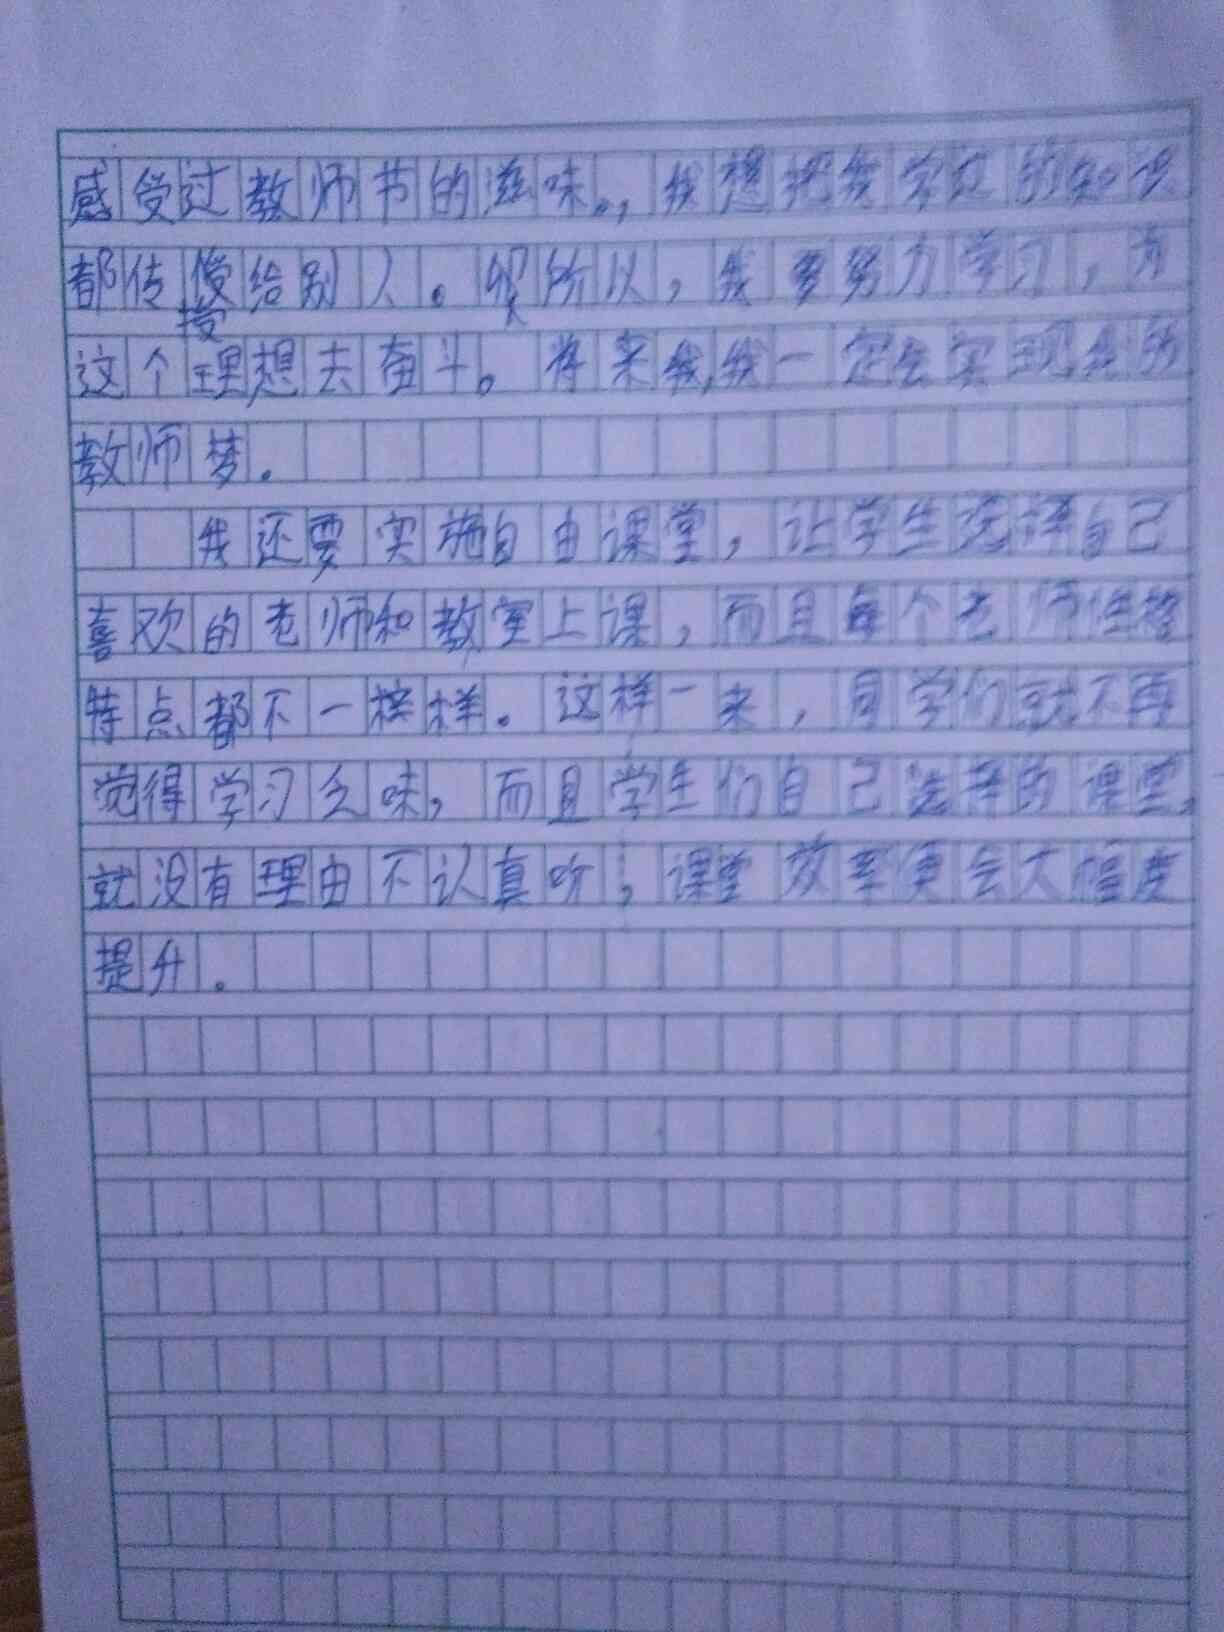 感受过教师节的滋味。,我想把我学过的知识
都传授给别人。所以,我要努力学习,为
授
这个理想去奋斗。将来我,我一定会实现我的
教师梦。
我还要实施自由课堂,让学生选择自己
喜欢的老师和教室上课,而且每个老师性格
特点都不一样样。这样一来,同学们就不再
觉得学习乏味,而且学生们自己选择的课堂,
就没有理由不认真听,课堂效率便会大幅度
提升。